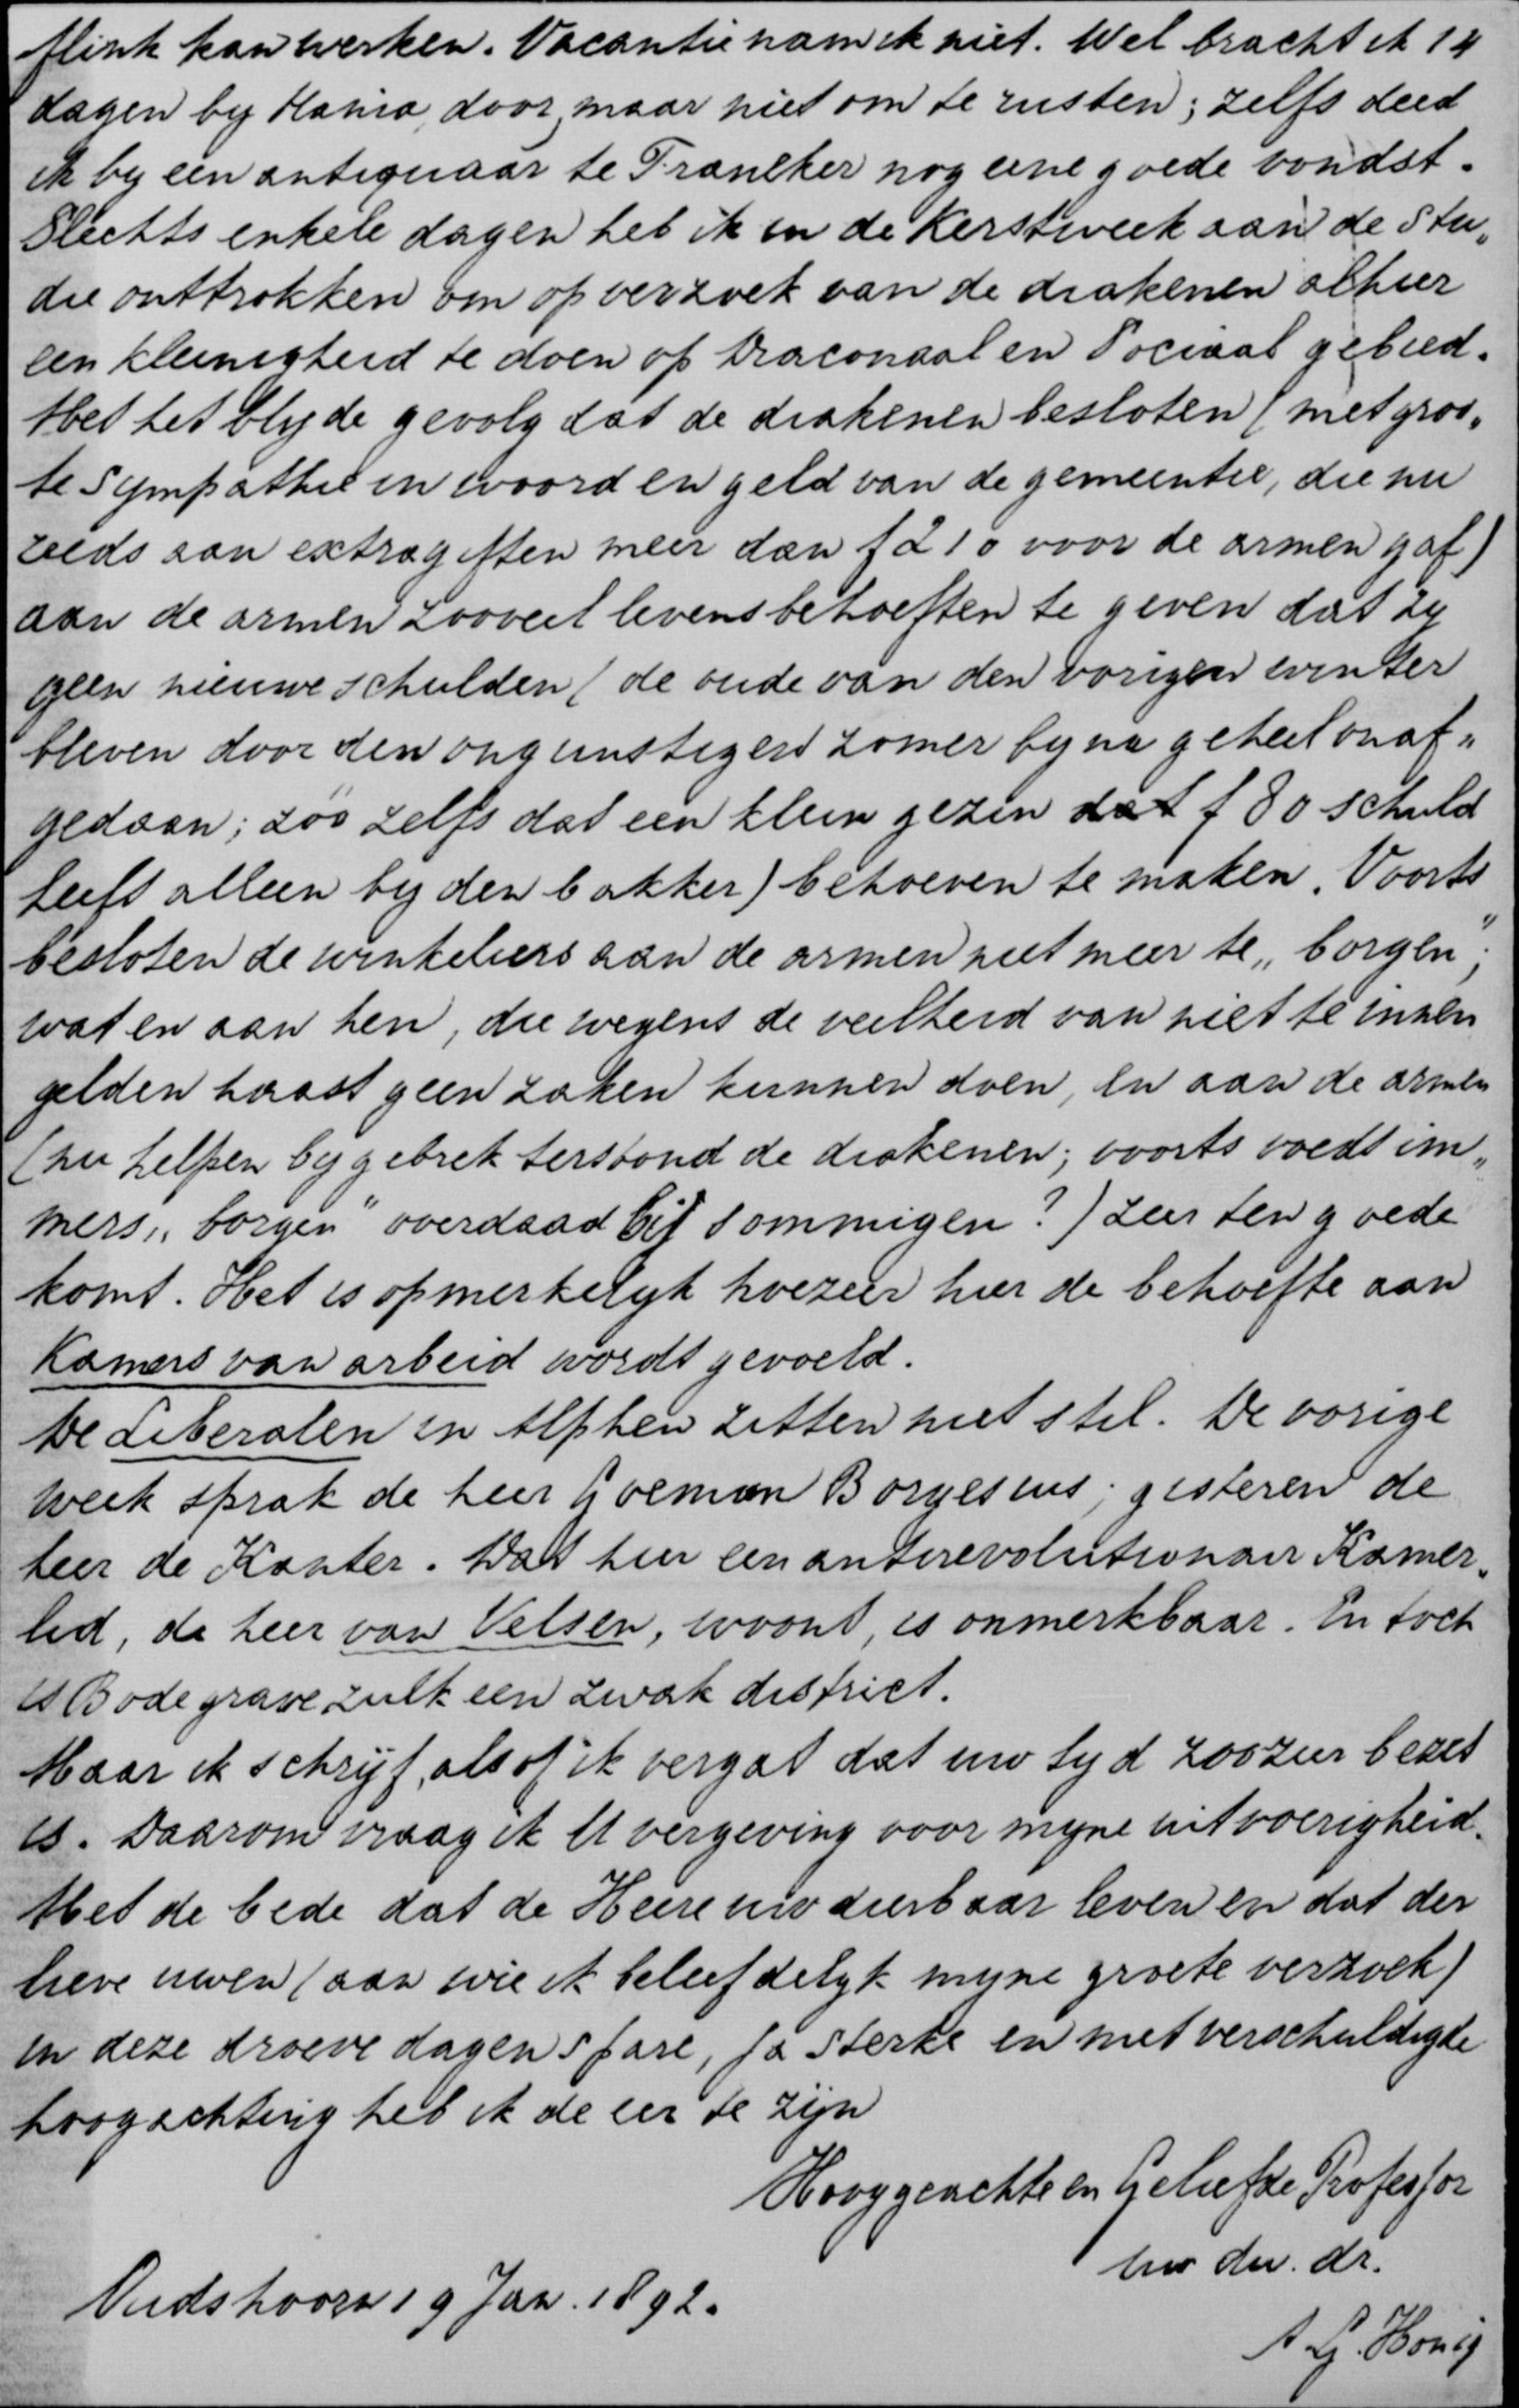 flink kan werken. Vacantie nam ik niet. Wel bracht ik 14
dagen by Hania door, maar niet om te rusten; zelfs deed
ik by een antiquaar te Franeker nog eene goede vondst.
Slechts enkele dagen heb ik in de Kerstweek aan de stu„
die onttrokken om op verzoek van de diakenen alhier
een kleinigheid te doen op Diaconaal en Sociaal gebied.
Met het blyde gevolg dat de diakenen besloten (met groo„
te sympathie in woord en geld van de gemeente, die nu
reeds aan extra giften meer dan f 210 voor de armen gaf)
aan de armen zooveel levensbehoeften te geven dat zy
geen nieuwe schulden (de oude van den vorigen winter
bleven door den ongunstigen zomer byna geheel onaf„
gedaan; zóó zelfs dat een klein gezin dat f 80 schuld
heeft alleen by den bakker) behoeven te maken. Voorts
besloten de winkeliers aan de armen niet meer te „borgen”;
wat en aan hen, die wegens de veelheid van niet te innen
gelden haast geen zaken kunnen doen, en aan de armen
(nu helpen by gebrek terstond de diakenen; voorts voedt im„
mers „borgen” overdaad bij sommigen?) zeer ten goede
komt. Het is opmerkelyk hoezeer hier de behoefte aan
Kamers van arbeid wordt gevoeld.
De Liberalen in Alphen zitten niet stil. De vorige
week sprak de heer Goeman Borgesius; gisteren de
heer de Kanter. Dat hier een antirevolutionair Kamer„
lid, de heer van Velsen, woont, is onmerkbaar. En toch
is Bodegrave zulk een zwak district.
Maar ik schrijf, alsof ik vergat dat uw tyd zoozeer bezet
is. Daarom vraag ik U vergeving voor myne uitvoerigheid.
Met de bede dat de Heere uw dierbaar leven en dat der
lieve uwen (aan wie ik beleefdelyk myne groete verzoek)
in deze droeve dagen spare, ja sterke en met verschuldigde
hoogachting heb ik de eer te zijn
Hooggeachte en Geliefde Professor
uw dw. dr.
Oudshoorn 19 Jan. 1892.
A. G. Honig